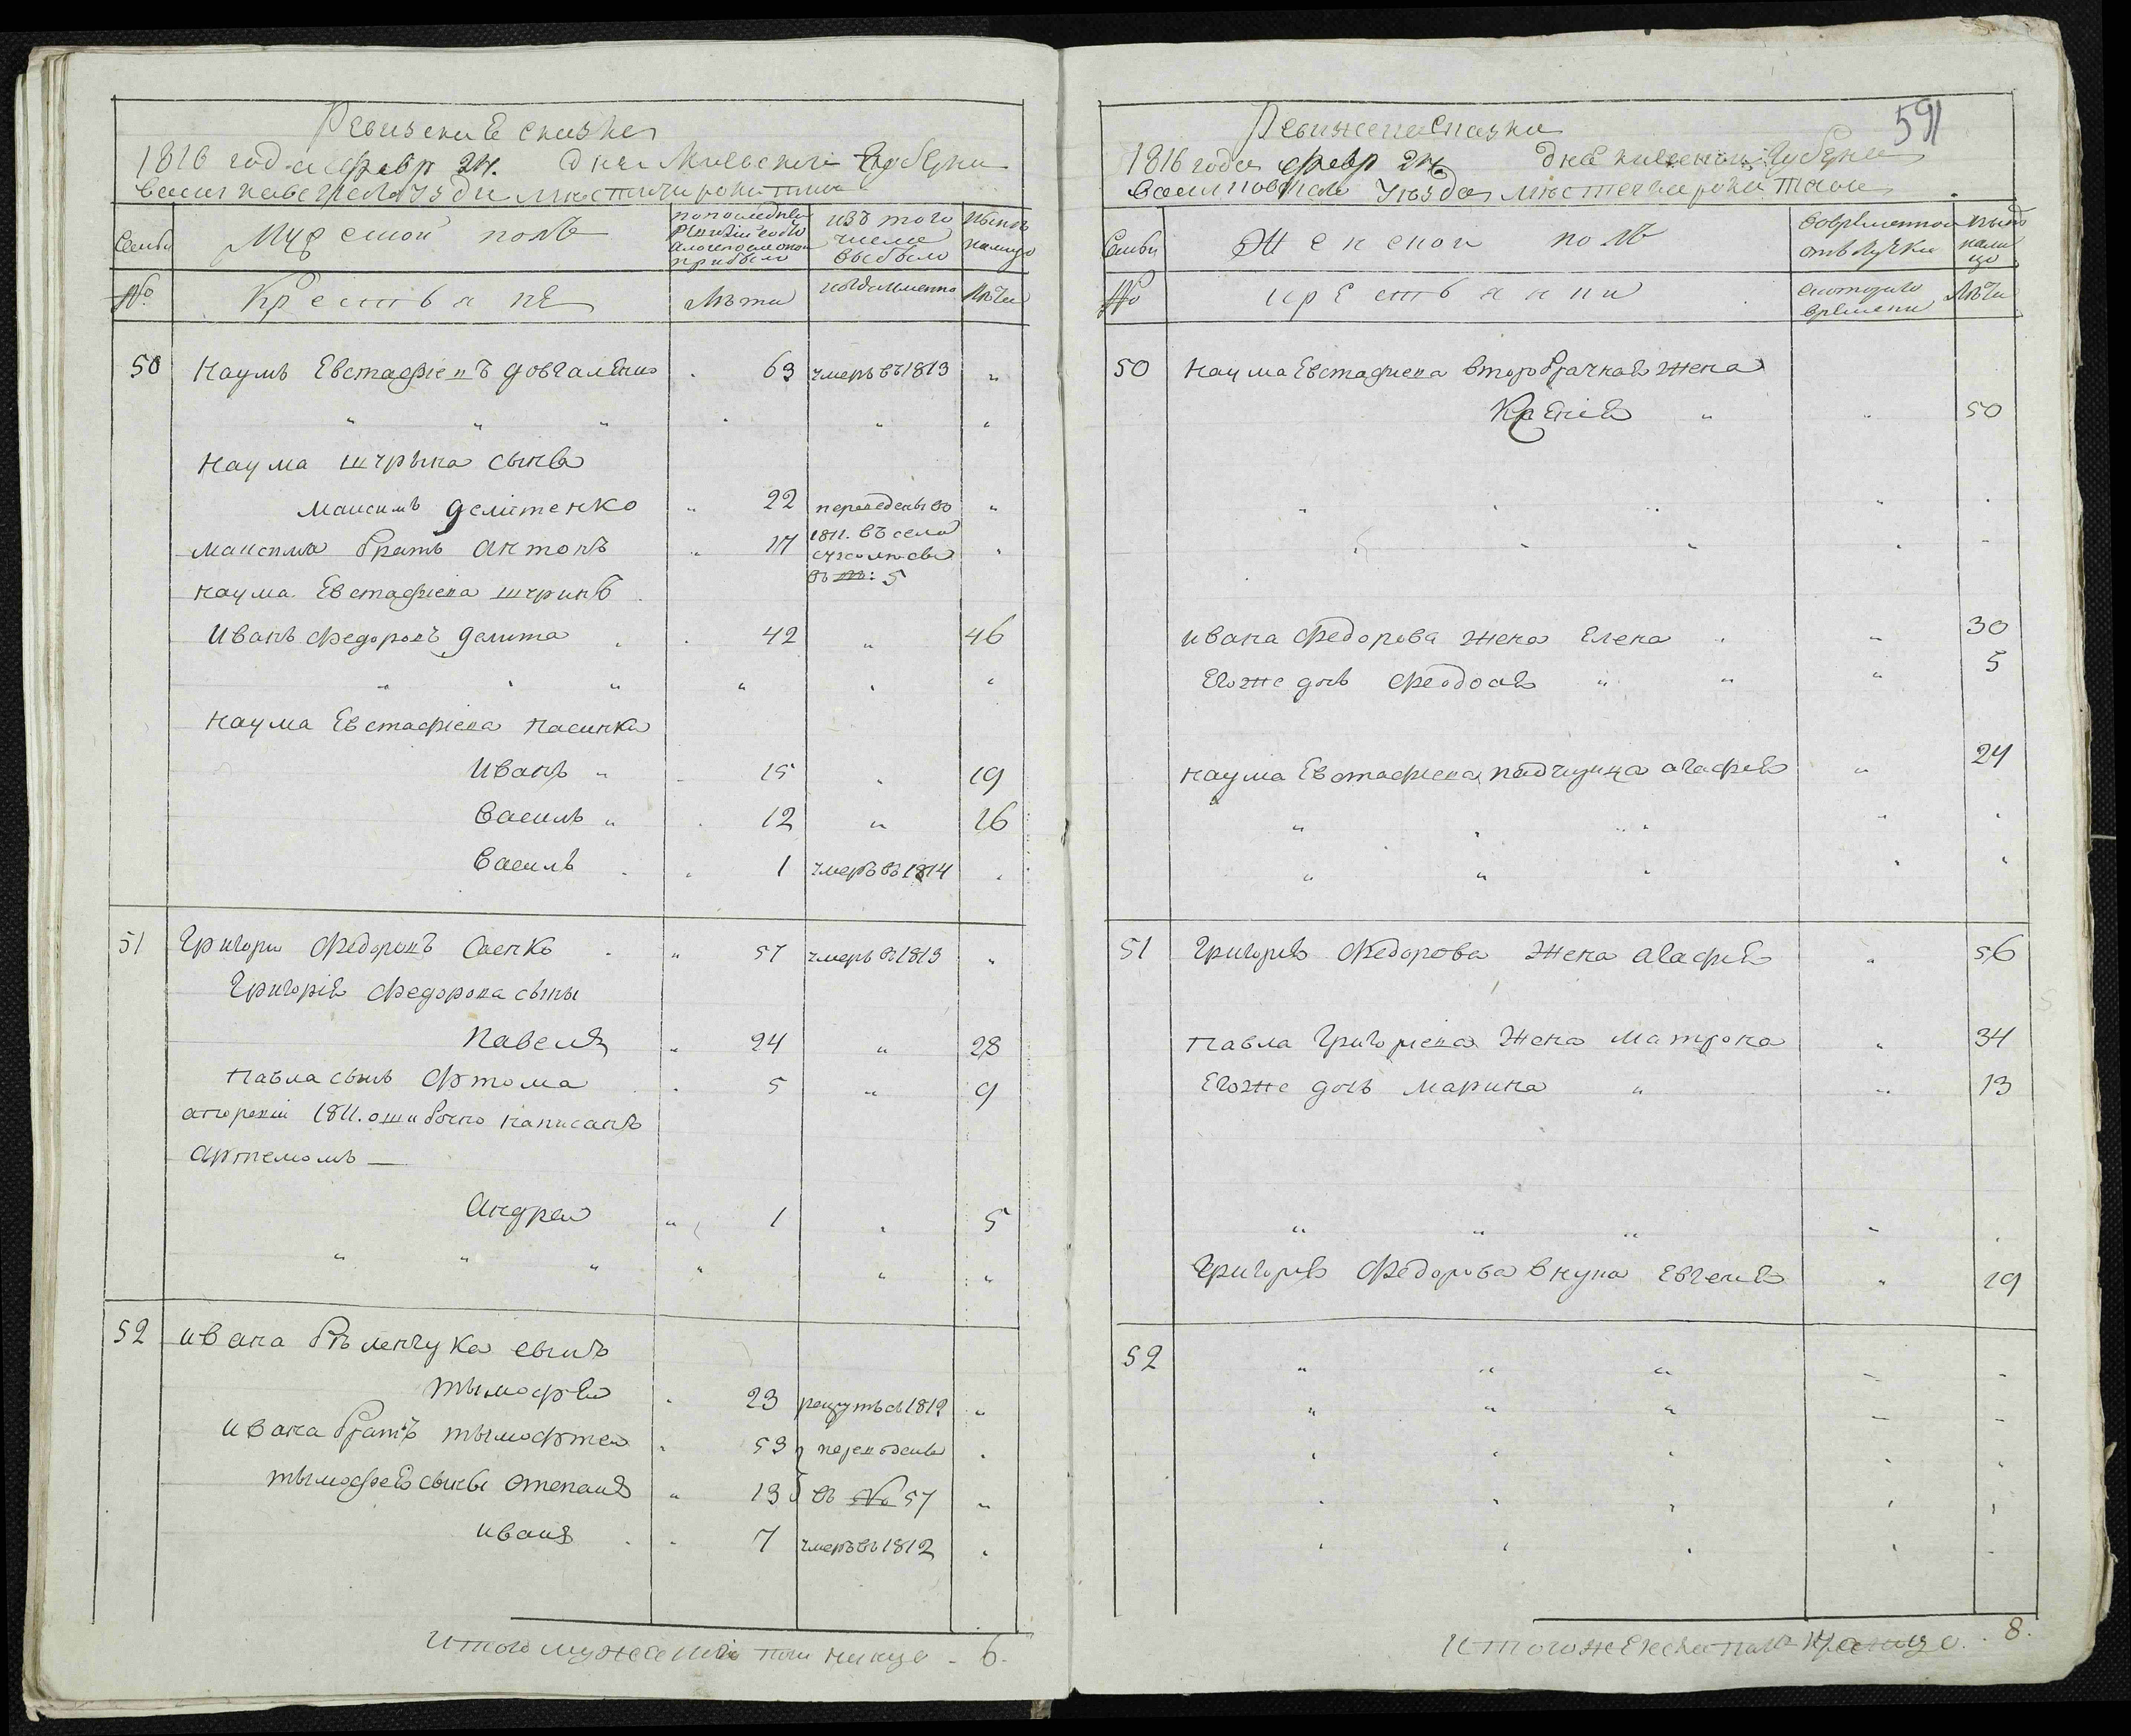 Ревизская сказка
1816 года февр 24. дня Киевской Губерни
васильковского уезда местечка рокитно
Семьи
Мужеской полъ
по последней ревизии состояло и после оной прибыло
изъ того числа выбыло
ныне на лицо
№
Крестьяне
Лета
когда именно
Лета
50 Наумъ Евстафиевъ довгаленко 63 умеръ въ 1813
Наума шурына сынъ
Максимъ делитенко 22 переведены въ
1811. въ село
Максима братъ Антонъ 17
въ №: 5
Наума Евстафиева шуринъ
Иванъ Федоровъ делита 42 46
Наума Евстафиева пасинки
Иванъ 15 19
Василь 12 16
Василь 1 умеръ въ 1814
51 Григори Федоровъ Саенко 57 умеръ въ 1813
Григорія Федорова сыны
Павелъ 24 28
Павла сынъ Фтома 5 9
а по ревизии 1811. ошибочно написанъ
Артемомъ —
Андреи 1 5
52 Ивана беленчука сынъ
тымофеи 23 рекрутъ въ 1812
Ивана братъ тымофтеи 53 переведены
тымофея сыны Степанъ 13 въ № 57
иванъ 7 умеръ въ 1812
Итого мужеска пола на лицо - 6.
591
Ревижская Сказка
1816 года февр 24 дня киевской Губерни
васильковского уезда местечка рокитное
Семьи
Женской полъ
Во временной отлучки
ныне на лицо
№
крестьянки
с которого времени
Лета
50 Наума Евстафиева второбрачная жена
Ксения 50
Ивана Федорова жена Елена 30
Егоже дочь Феодосия 5
Наума Евстафиева падчерица агафия 24
51 Григория Федорова жена агафия 56
Павла Григориева жена матрона 34
Егоже дочь марина 13
Григория Федорова внука Евгения 19
52
Итого женска пола на лицо. 8.